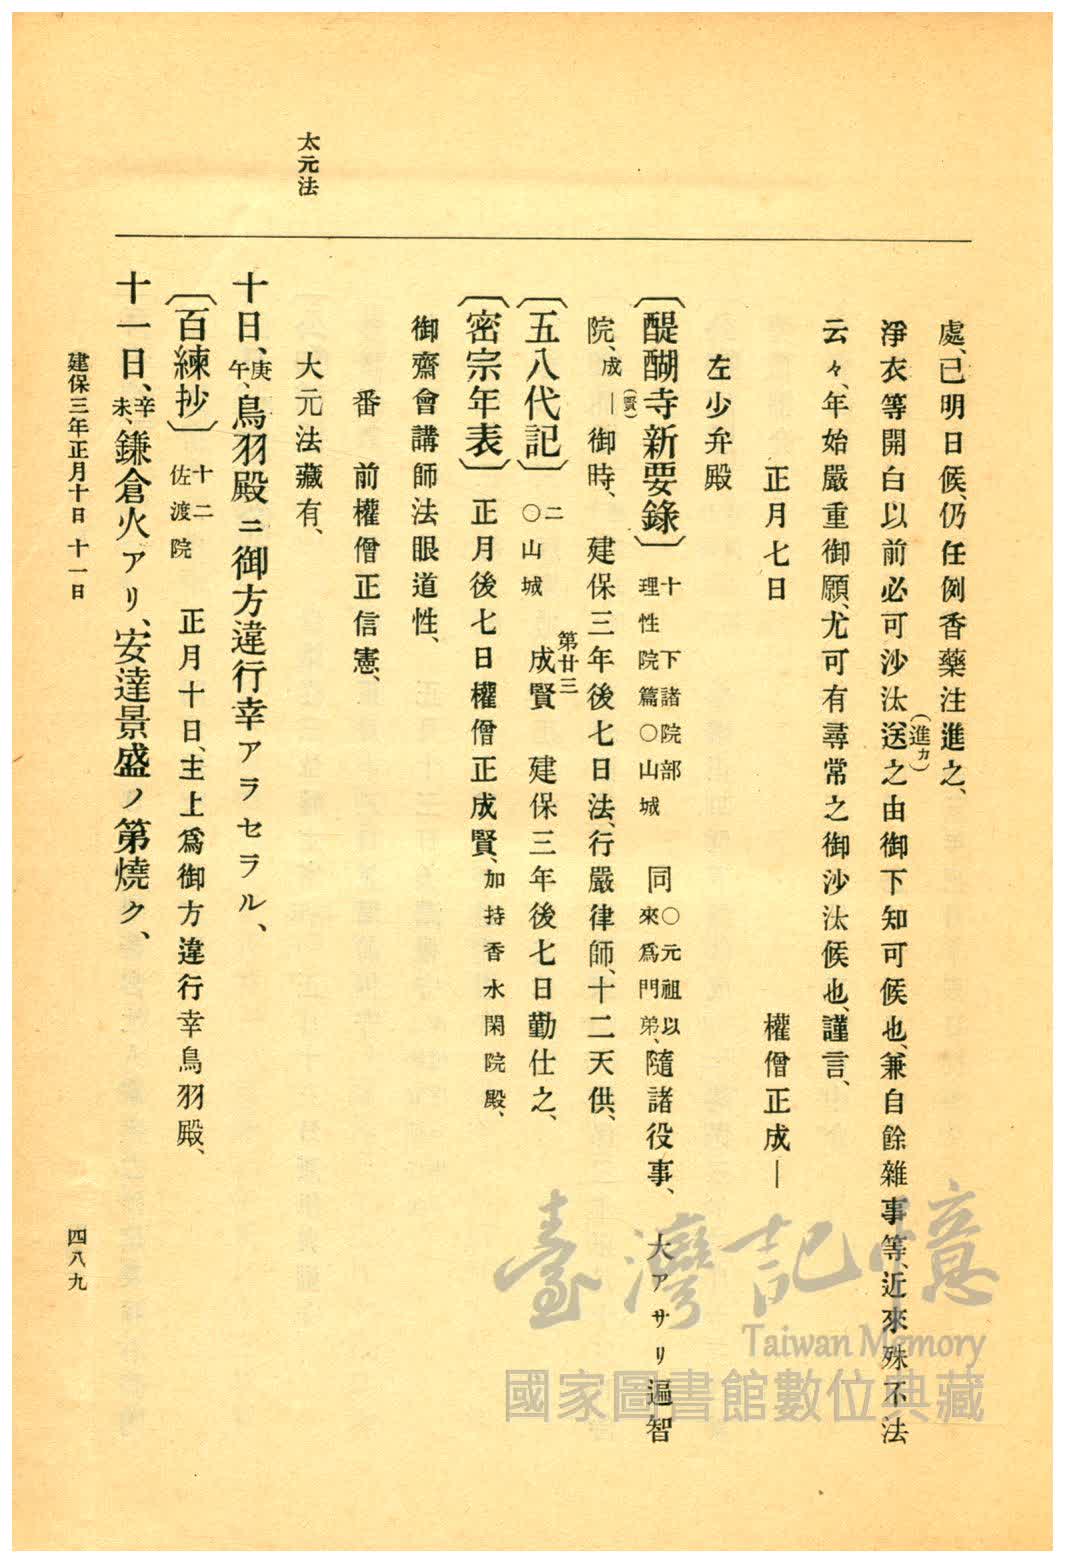 處、已明日候、仍任例香藥注進之、
淨衣等開白以前必可沙汰送(進カ)之由御下知可候也、兼自餘雜事等、近來殊不法
云々、年始嚴重御願、尤可有尋常之御沙汰候也、謹言、
正月七日 權僧正成—
左少弁殿
〔醍醐寺新要錄〕 十下諸院部 理性院篇〇山城 同〇元祖以來爲門弟、隨諸役事、大アサリ遍智
院、成—(賢)御時、建保三年後七日法、行嚴律師、十二天供、
〔五八代記〕 二 〇山城 第廿三 成賢 建保三年後七日勤仕之、
〔密宗年表〕 正月後七日權僧正成賢、加持香水閑院殿、
御齋會講師法眼道性、
番 前權僧正信憲、
太元法
大元法藏有、
十日、庚午、鳥羽殿ニ御方違行幸アラセラル、
〔百練抄〕 十二 佐渡院 正月十日、主上爲御方違行幸鳥羽殿、
十一日、辛未、鎌倉火アリ、安達景盛ノ第燒ク、
建保三年正月十日 十一日
四八九
臺灣記憶
Taiwan Memory
國家圖書館數位典藏